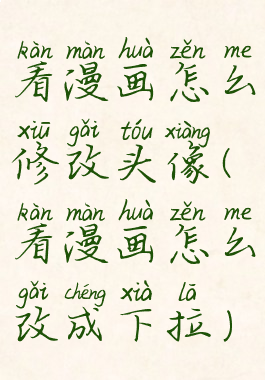 kàn màn huà zěn me
看漫画怎么
xiū gǎi tóu xiàng
修改头像(
kàn màn huà zěn me
看漫画怎么
gǎi chéng xià lā
改成下拉)